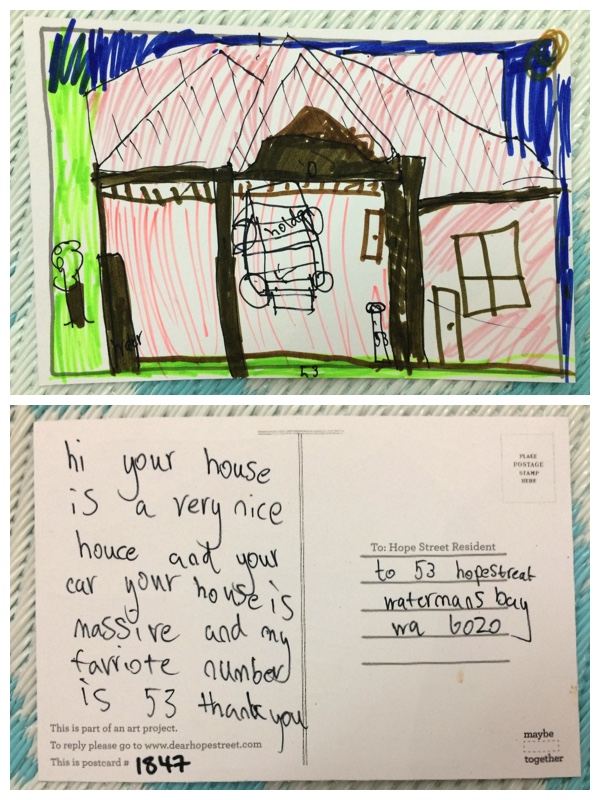 holden
53
53
hi your house
is a very nice
houce and your
car your house is
massive and my
farriote number
is 53 thank you
This is part of an art project.
To reply please go to www.dearhopestreet.com
This is postcard # 1847
PLACE
POSTAGE
STAMP
HERE
To: Hope Street Resident
to 53 hopestreat
watermans bay
wa 6020
maybe
together